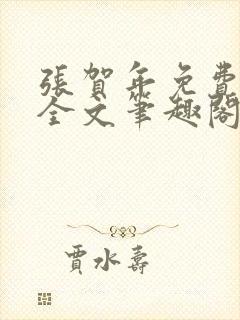 張賀年免費
全文筆趣閣
賈水壽